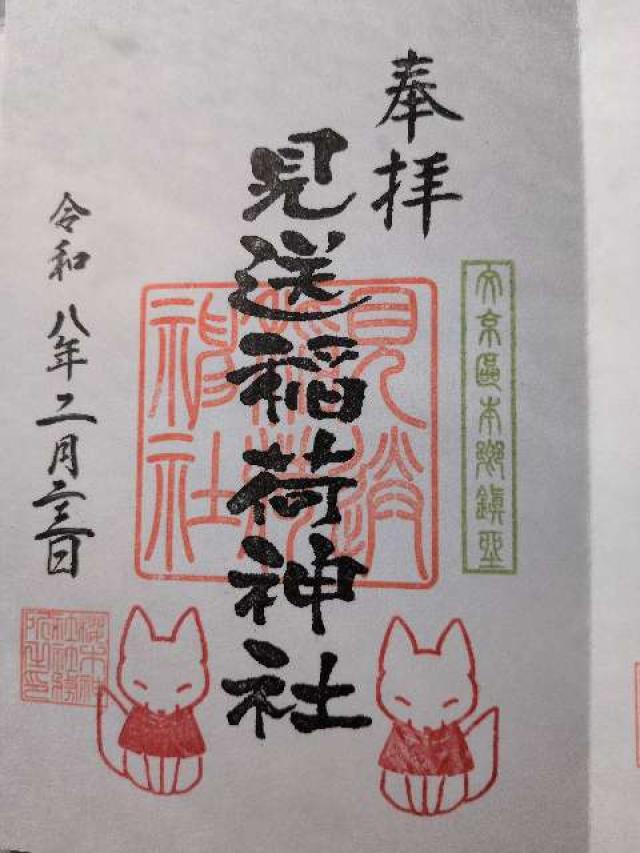 奉拝
文京區本郷鎮坐
見送稲荷神社
見送稲荷神社
令和八年二月二三日